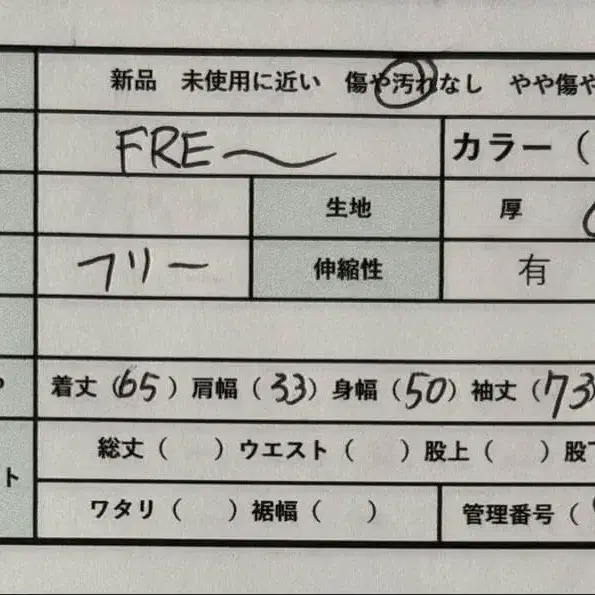 新品 未使用に近い 傷や汚れなし やや傷や
FRE〜 カラー（
生地 厚
フリー 伸縮性 有
着丈（65）肩幅（33）身幅（50）袖丈（73）
総丈（ ）ウエスト（ ）股上（ ）股下
ト
ワタリ（ ）裾幅（ ） 管理番号（